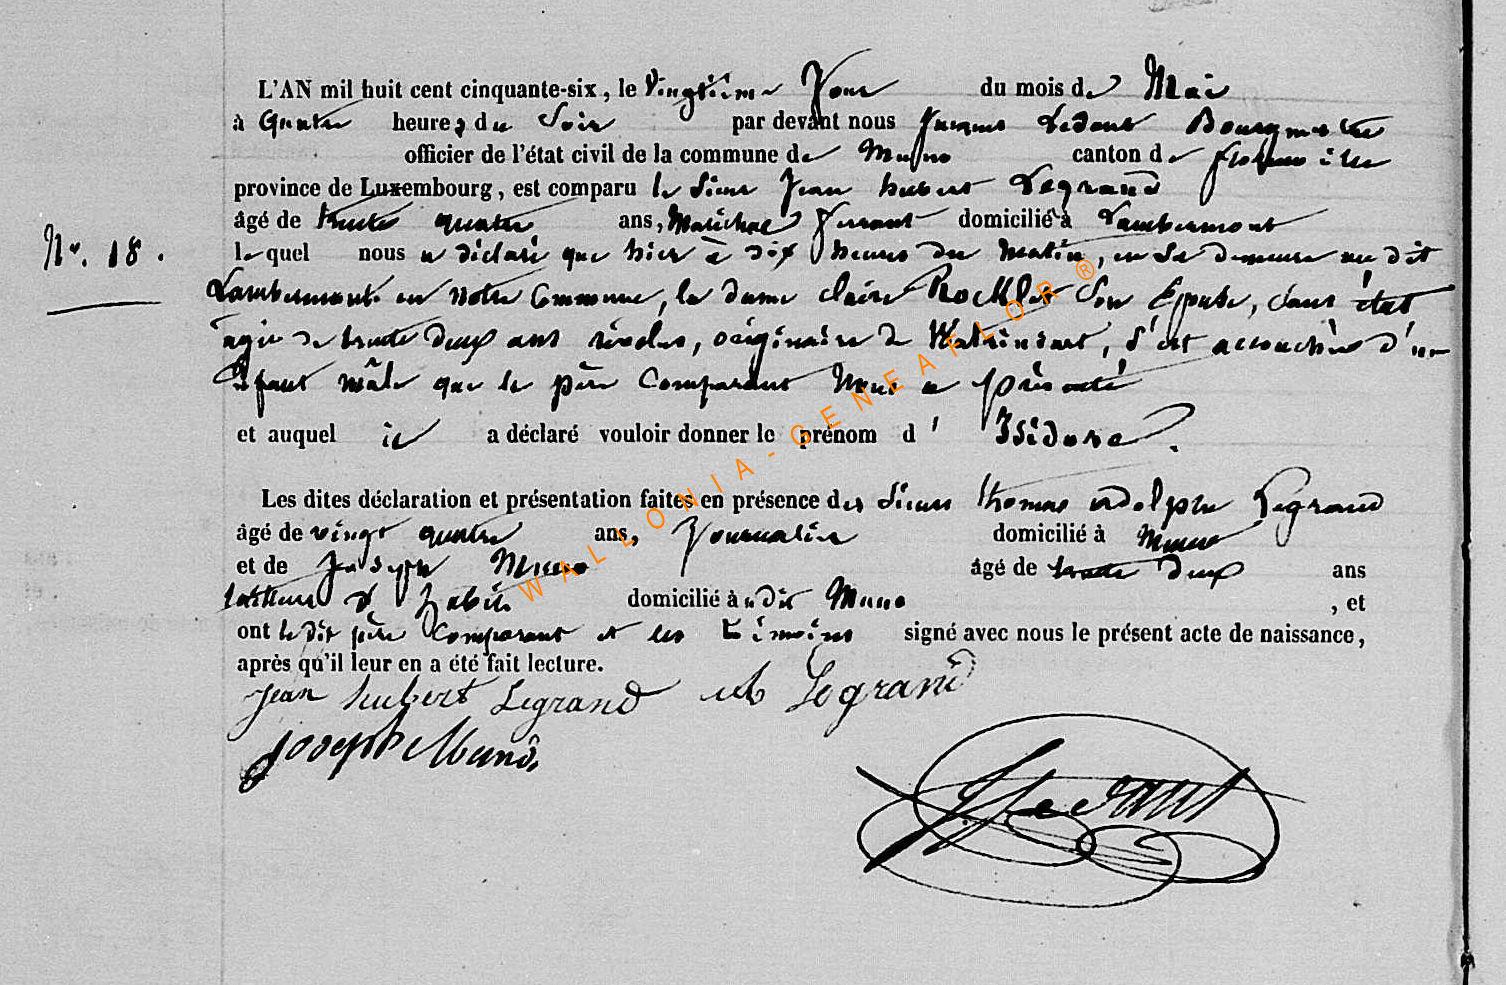 L'AN mil huit cent cinquante-six, le Vingtième Jour du mois de Mai
à Quatre heures du Soir par devant nous Jacques Ledant Bourgmestre
officier de l'état civil de la commune de Muno canton de Florenville
province de Luxembourg, est comparu le Sieur Jean hubert Legrand
âgé de trente quatre ans, Maréchal ferrant domicilié à Lambermont
N°. 18. lequel nous a déclaré que hier à dix heures du Matin, en Sa demeure au dit
Lambermont en notre Commune, la dame claire Son Epouse, sans état
agée de trente deux ans révolus, originaire de s'est accouchée d'un
Enfant mâle que le père Comparant Nous a présenté
et auquel il a déclaré vouloir donner le prénom d'Isidore.
Les dites déclaration et présentation faites en présence des Sieurs thomas adolphe Legrand
âgé de vingt quatre ans, Journalier domicilié à Muno
et de Joseph Muno âgé de trente deux ans
tailleur d'habits domicilié à u dit Muno , et
ont le dit père Comparant et les témoins signé avec nous le présent acte de naissance,
après qu'il leur en a été fait lecture.
jean hubert Legrand Legrand
joseph Muno
Ledant
WALLONIA-GENEAFLOR®